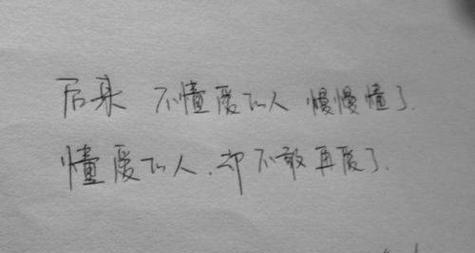 后来 不懂爱的人 慢慢懂了.
懂爱的人.却不敢再爱了.